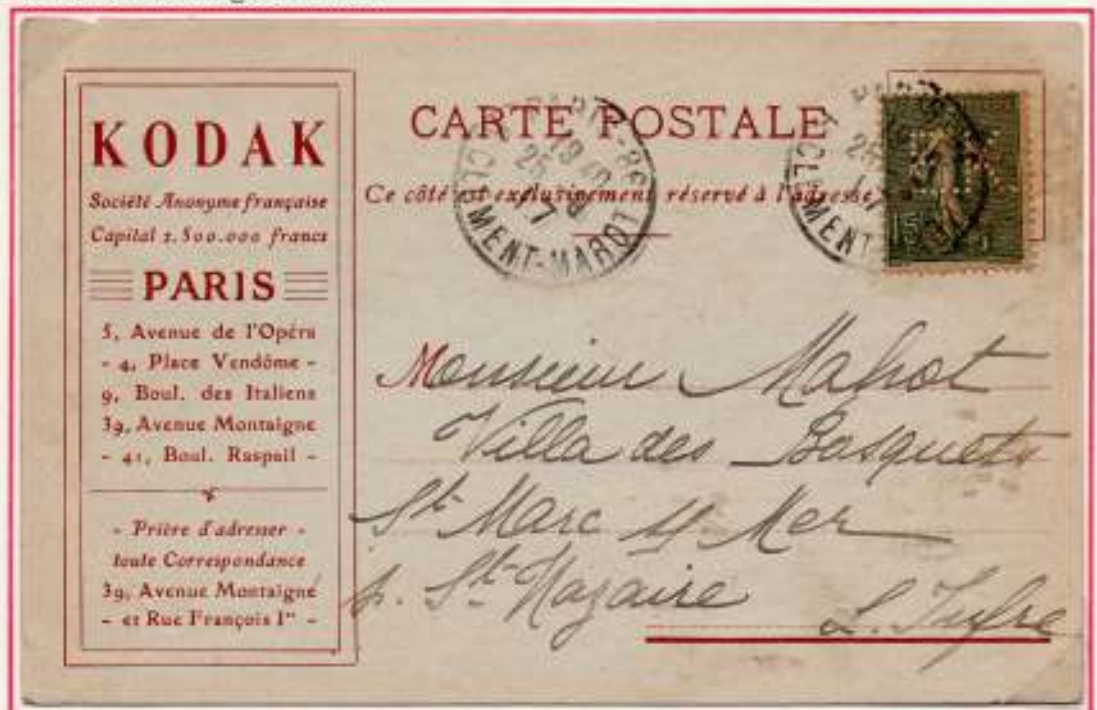 KODAK
Société Anonyme française
Capital 1.500.000 francs
PARIS
5, Avenue de l'Opéra
- 4, Place Vendôme -
9, Boul. des Italiens
39, Avenue Montaigne
- 41, Boul. Raspail -
- Prière d'adresser -
toute Correspondance
39, Avenue Montaigne
- et Rue François Ier -
CARTE POSTALE
Ce côté est exclusivement réservé à l'adresse
PARIS-88
19 40
25
17
CLEMENT-MAROT
25
17
MENT
15
Monsieur Mahot
Villa des Bosquets
St Marc s/ Mer
p. St-Nazaire
L. Infre